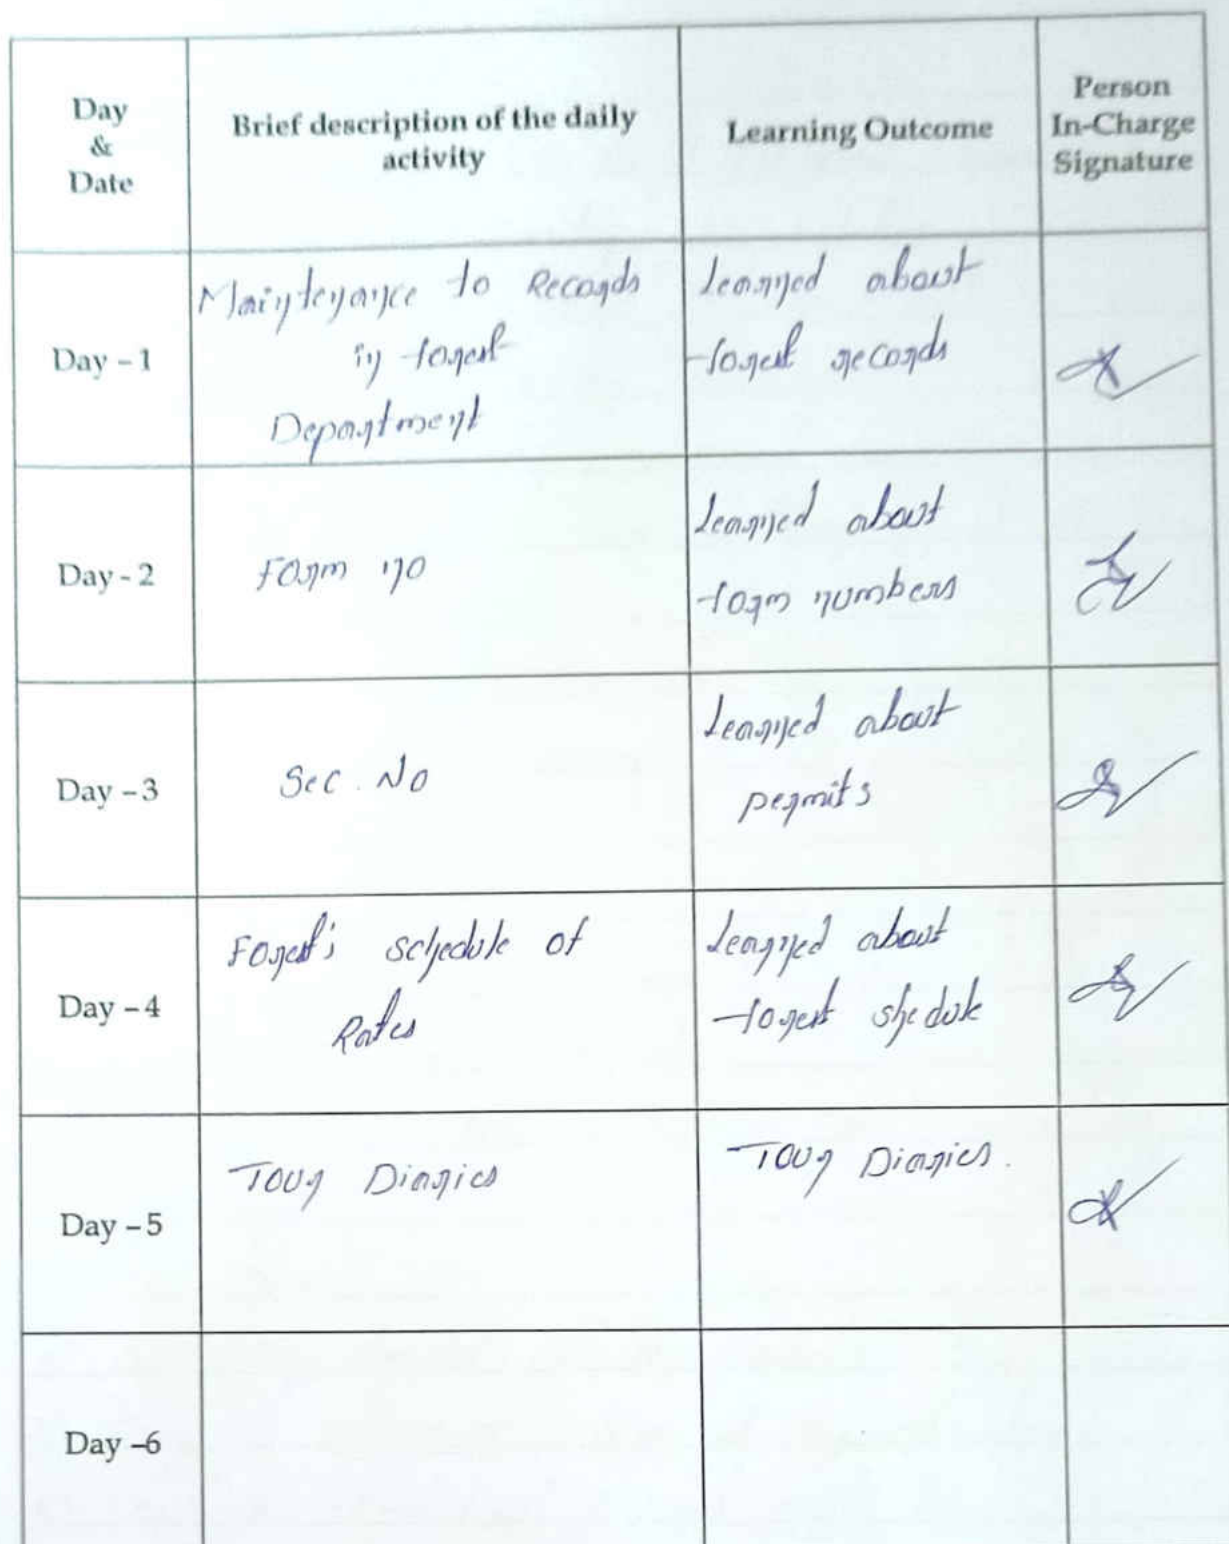 Day
&
Date
Brief description of the daily
activity
Learning Outcome
Person
In-Charge
Signature
Day - 1
Maintenance to Records
in forest
Department
Learned about
forest records
Day - 2
Form no
Learned about
form numbers
Day - 3
Sec. No
Learned about
permits
Day - 4
Forest's schedule of
Rates
Learned about
forest shedule
Day - 5
Tour Diaries
Tour Diaries.
Day -6